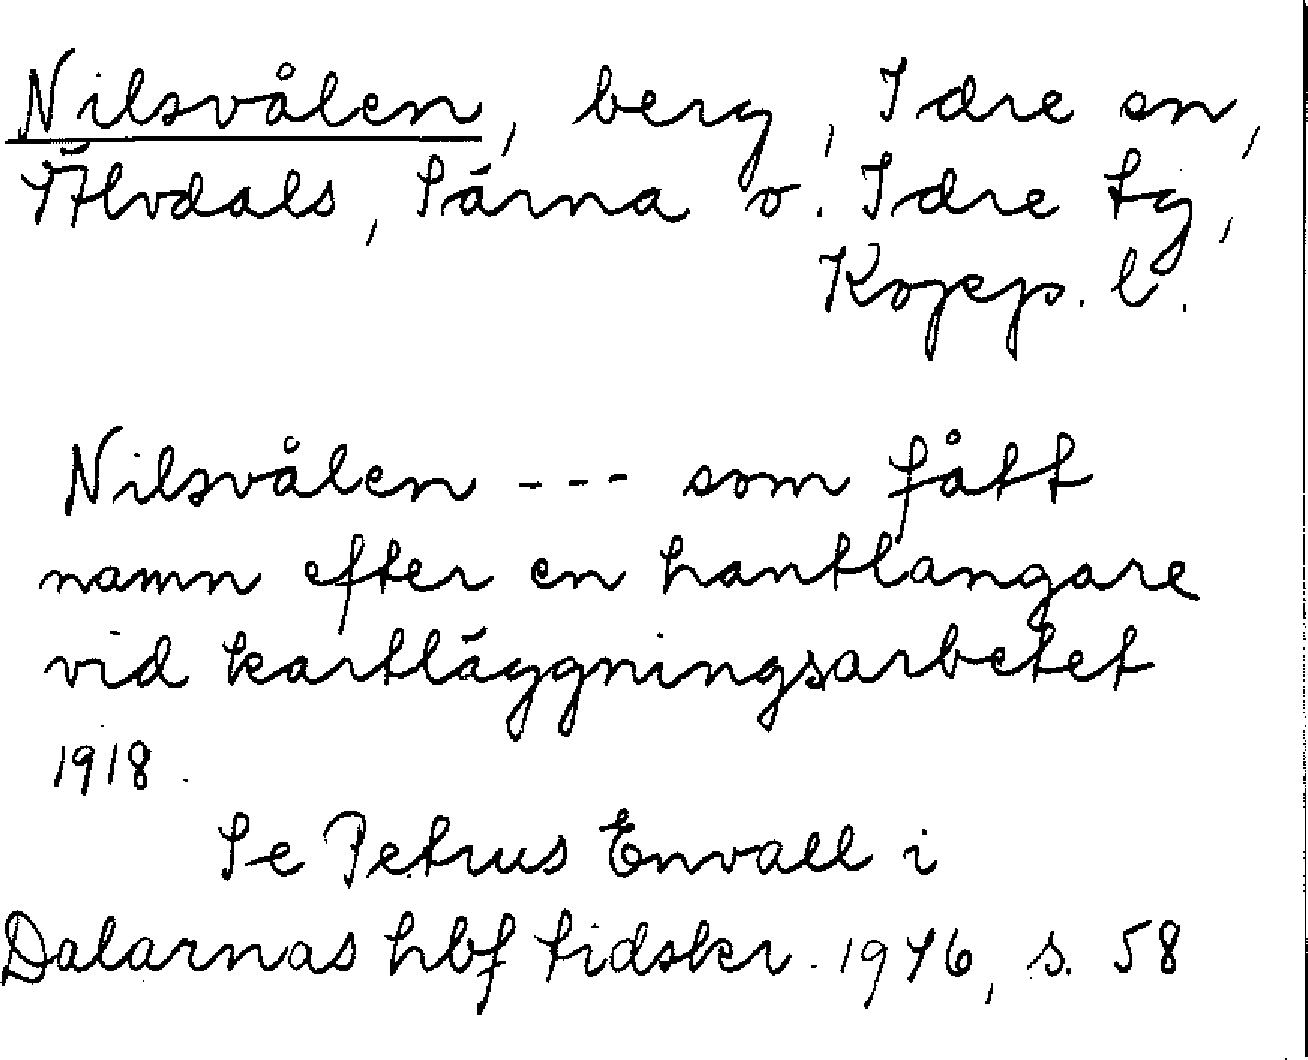 Nilsvålen, berg, Idre sn,
Älvdals, Särna o. Idre tg,
Kopp. l.
Nilsvålen --- som fått
namn efter en hantlangare
vid kartläggningsarbetet
1918.
Se Petrus Envall i
Dalarnas hbf tidskr. 1976, s. 58